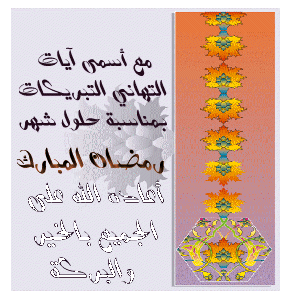 مع أسمى آيات
التهاني التبريكات
بمناسبة حلول شهر
رمضان المبارك
أعاده الله على
الجميع بالخير
والبركة